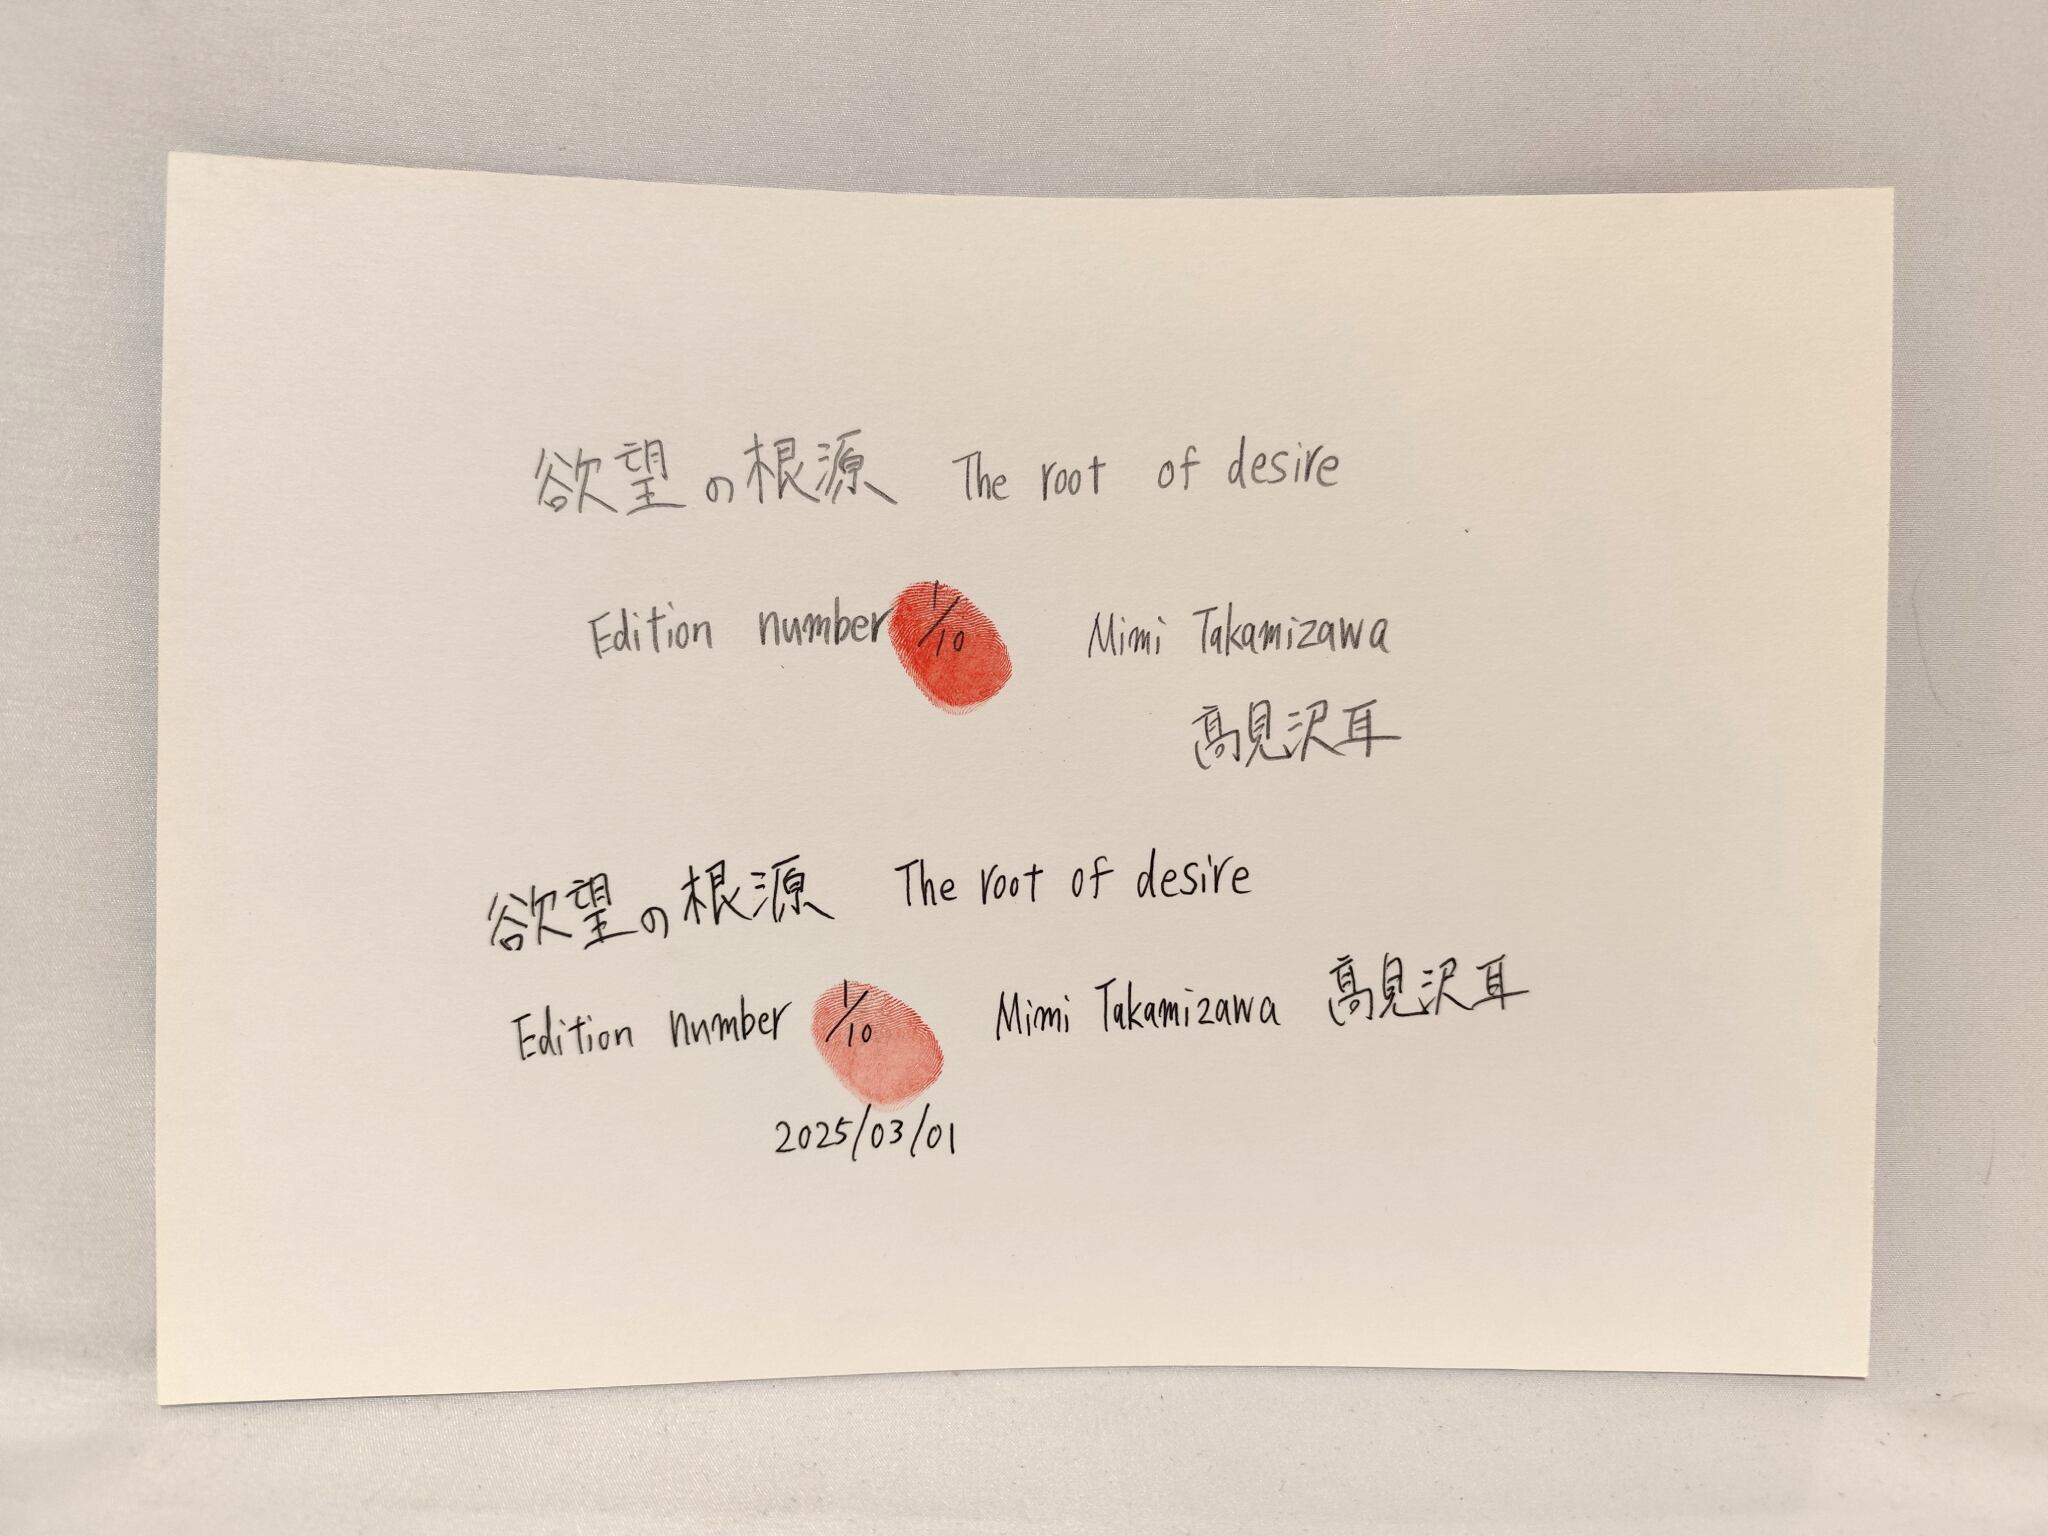 欲望の根源 The root of desire
Edition number 1/10 Mimi Takamizawa
高見沢耳
欲望の根源 The root of desire
Edition number 1/10 Mimi Takamizawa 高見沢耳
2025/03/01